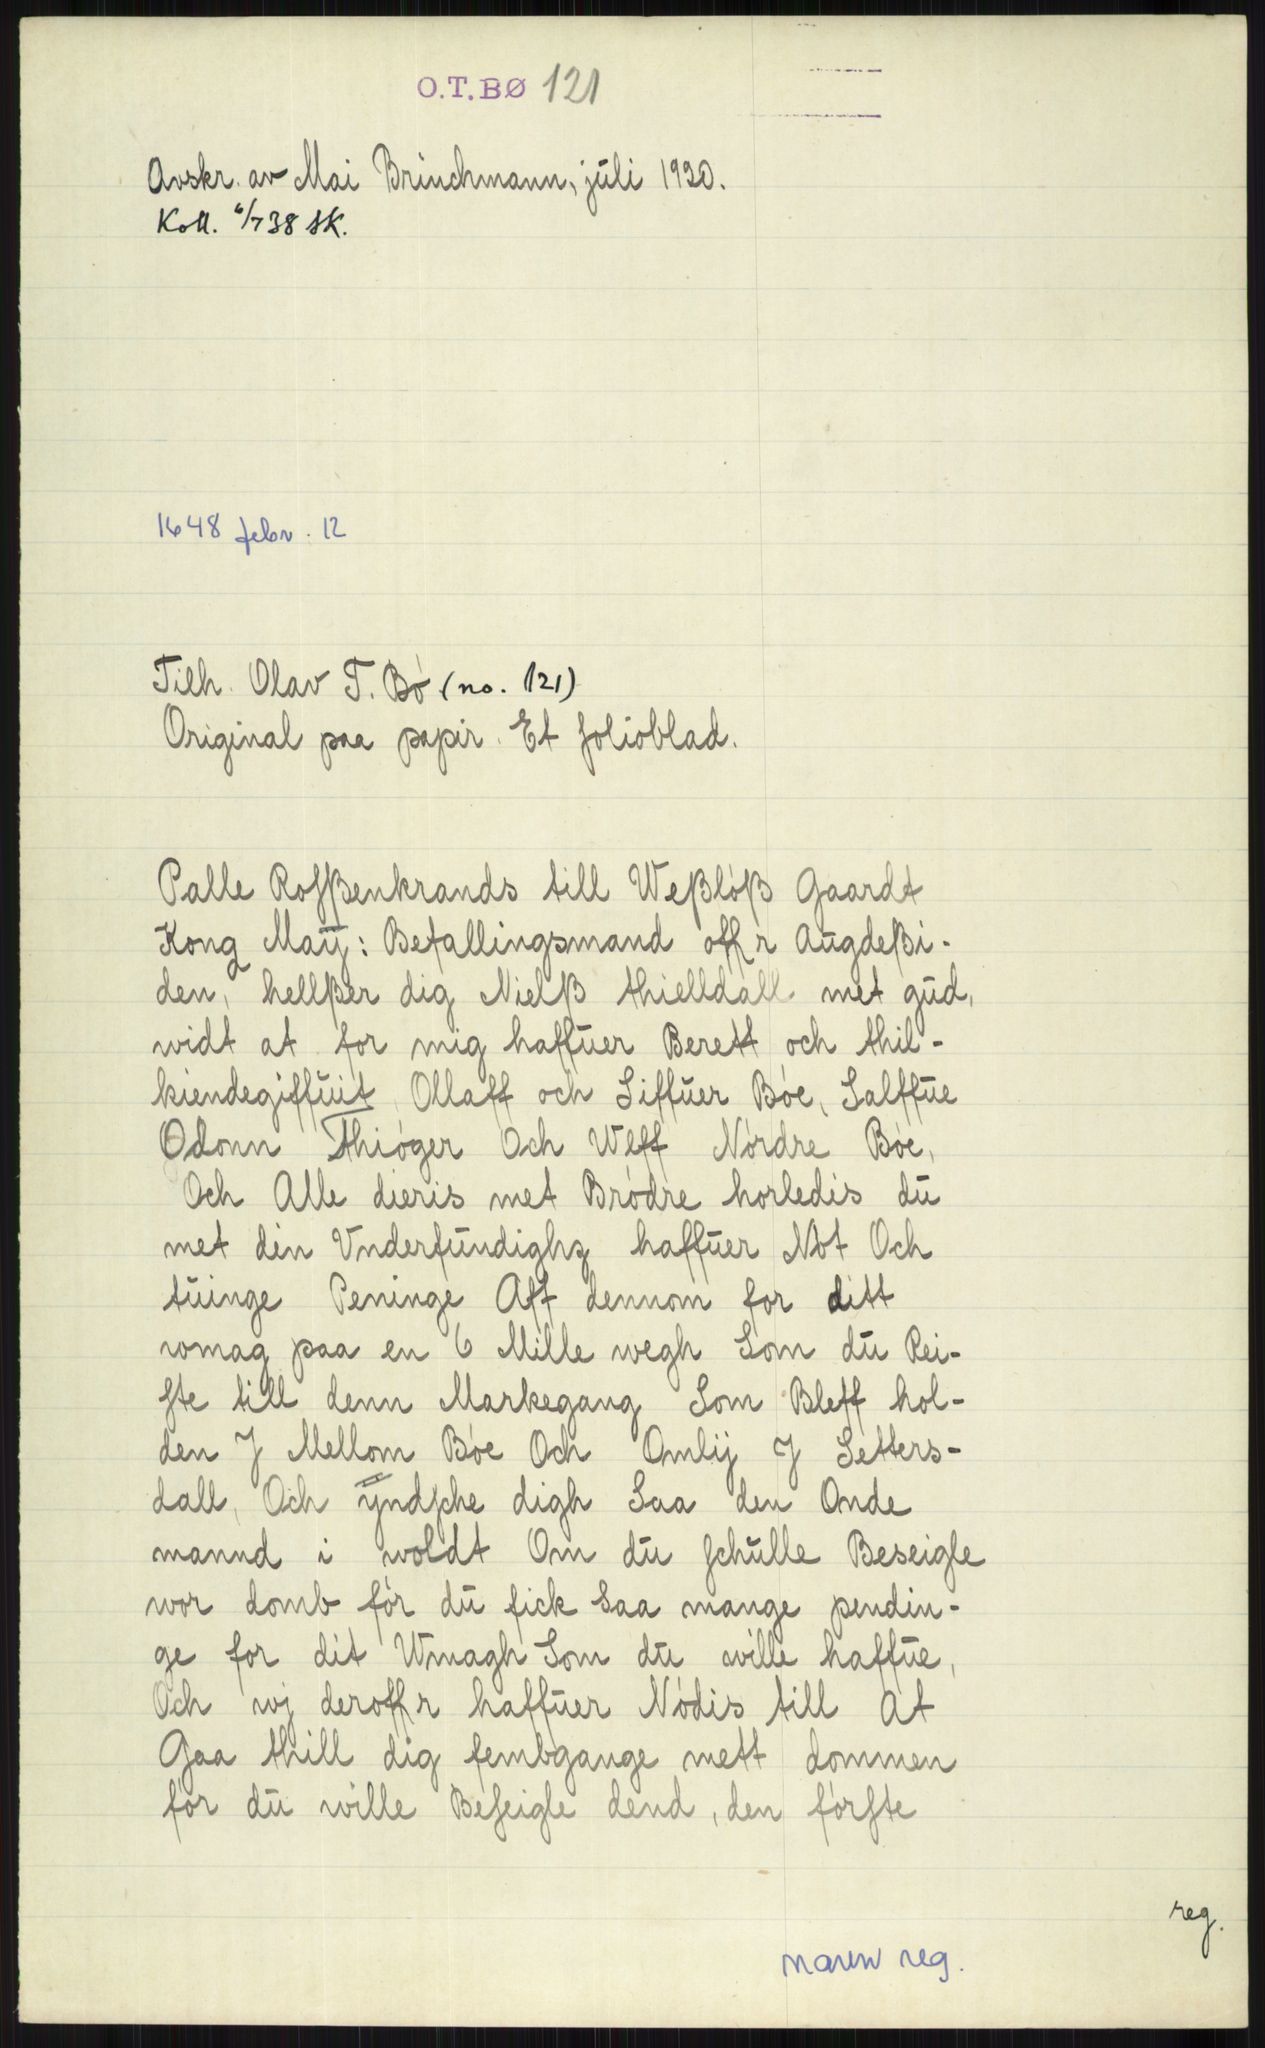 O.T.BØ 121
Avskr. av Mai Brinchmann, juli 1920.
Koll. 6/7 38 SK.
1648 febr. 12
Tilh. Olav T. Bö (no. 121)
Original paa papir. Et folioblad.
Palle Rosßenkrands till Weßlöß Gaardt
Kong Maÿ: Befallingsmand offr Augdeßi-
den, hellßer dig Nielß thielldall met gud,
widt at for mig haffuer Berett och thil-
kiendegiffuit Ollaff och Siffuer Böe, Salffue
Odonn Thiöger Och Wlff Nördre Böe,
Och Alle dieris met Brödre horledis du
met din Vnderfundighz haffuer Nöt Och
tuinge Peninge Aff dennom for ditt
womag paa en 6 Mille wegh Som du Rei-
ste till denn Markegang Som Bleff hol-
den J Mellom Böe Och Omlij J Setters-
dall, Och ÿndsche digh Saa den Onde
mannd i woldt Om du schulle Beseigle
wor domb för du fick Saa mange pendin-
ge for dit Wmagh Som du wille haffue,
Och wj deroffr haffuer Nödis till At
Gaa thill dig fembgange mett dommen
för du wille Beseigle dend, den förste
reg.
navn reg.